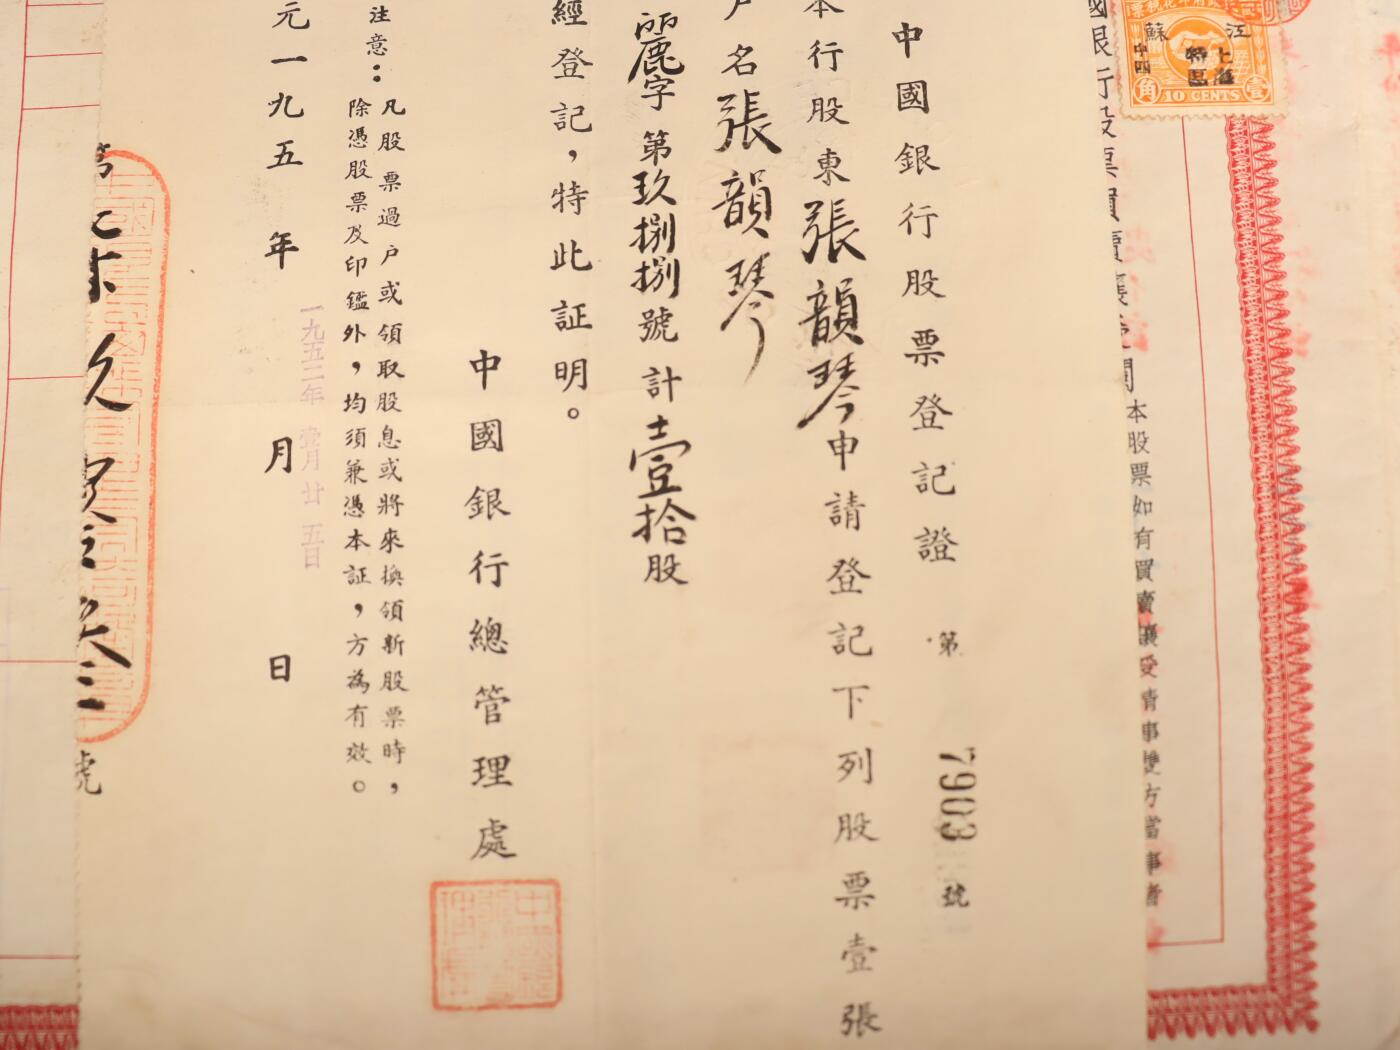 中國銀行股票登記證 第 7903 號
本行股東張韻琴申請登記下列股票壹張
戶名張韻琴
麗字第玖捌捌號計壹拾股
經登記，特此証明。
中國銀行總管理處
注意：凡股票過户或領取股息或將來換領新股票時，
除憑股票及印鑑外，均須兼憑本証，方為有效。
一九五二年壹月廿五日
元一九五 年 月 日
江蘇
上海
特區
中四
角 10 CENTS 壹
國銀行股票買賣
本股票如有買賣讓受情事雙方當事者
號